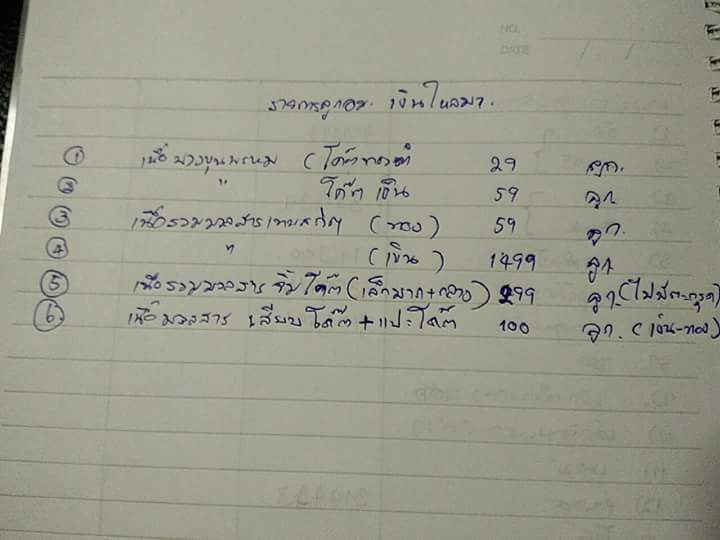 รายการลูกอม. เงินไหลมา.
① เนื้อบางขุนพรหม (โค๊ตทองคำ 29 ลูก.
② " โค๊ต เงิน 59 ลูก
③ เนื้อรวมมวลสาร (ทอง) 59 ลูก.
④ " (เงิน) 1499 ลูก
⑤ เนื้อรวมมวลสาร จิ้มโค๊ต (เล็กมาก+กลาง) 299 ลูก.(ไม่มีตะกรุด)
⑥ เนื้อมวลสาร เสียบโค๊ต + แปะโค๊ต 100 ลูก. (เงิน-ทอง)